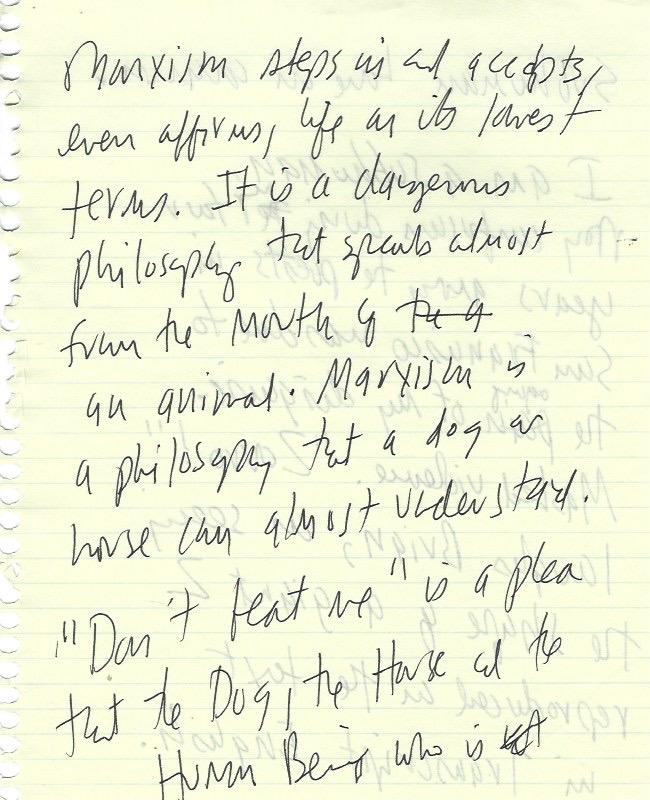 Marxism steps in and accepts,
even affirms, life on its lowest
terms. It is a dangerous
philosophy that speaks almost
from the mouth of the a
an animal. Marxism is
a philosophy that a dog or
horse can almost understand.
"Don't beat me" is a plea
that the Dog, the Horse and the
Human Being who is